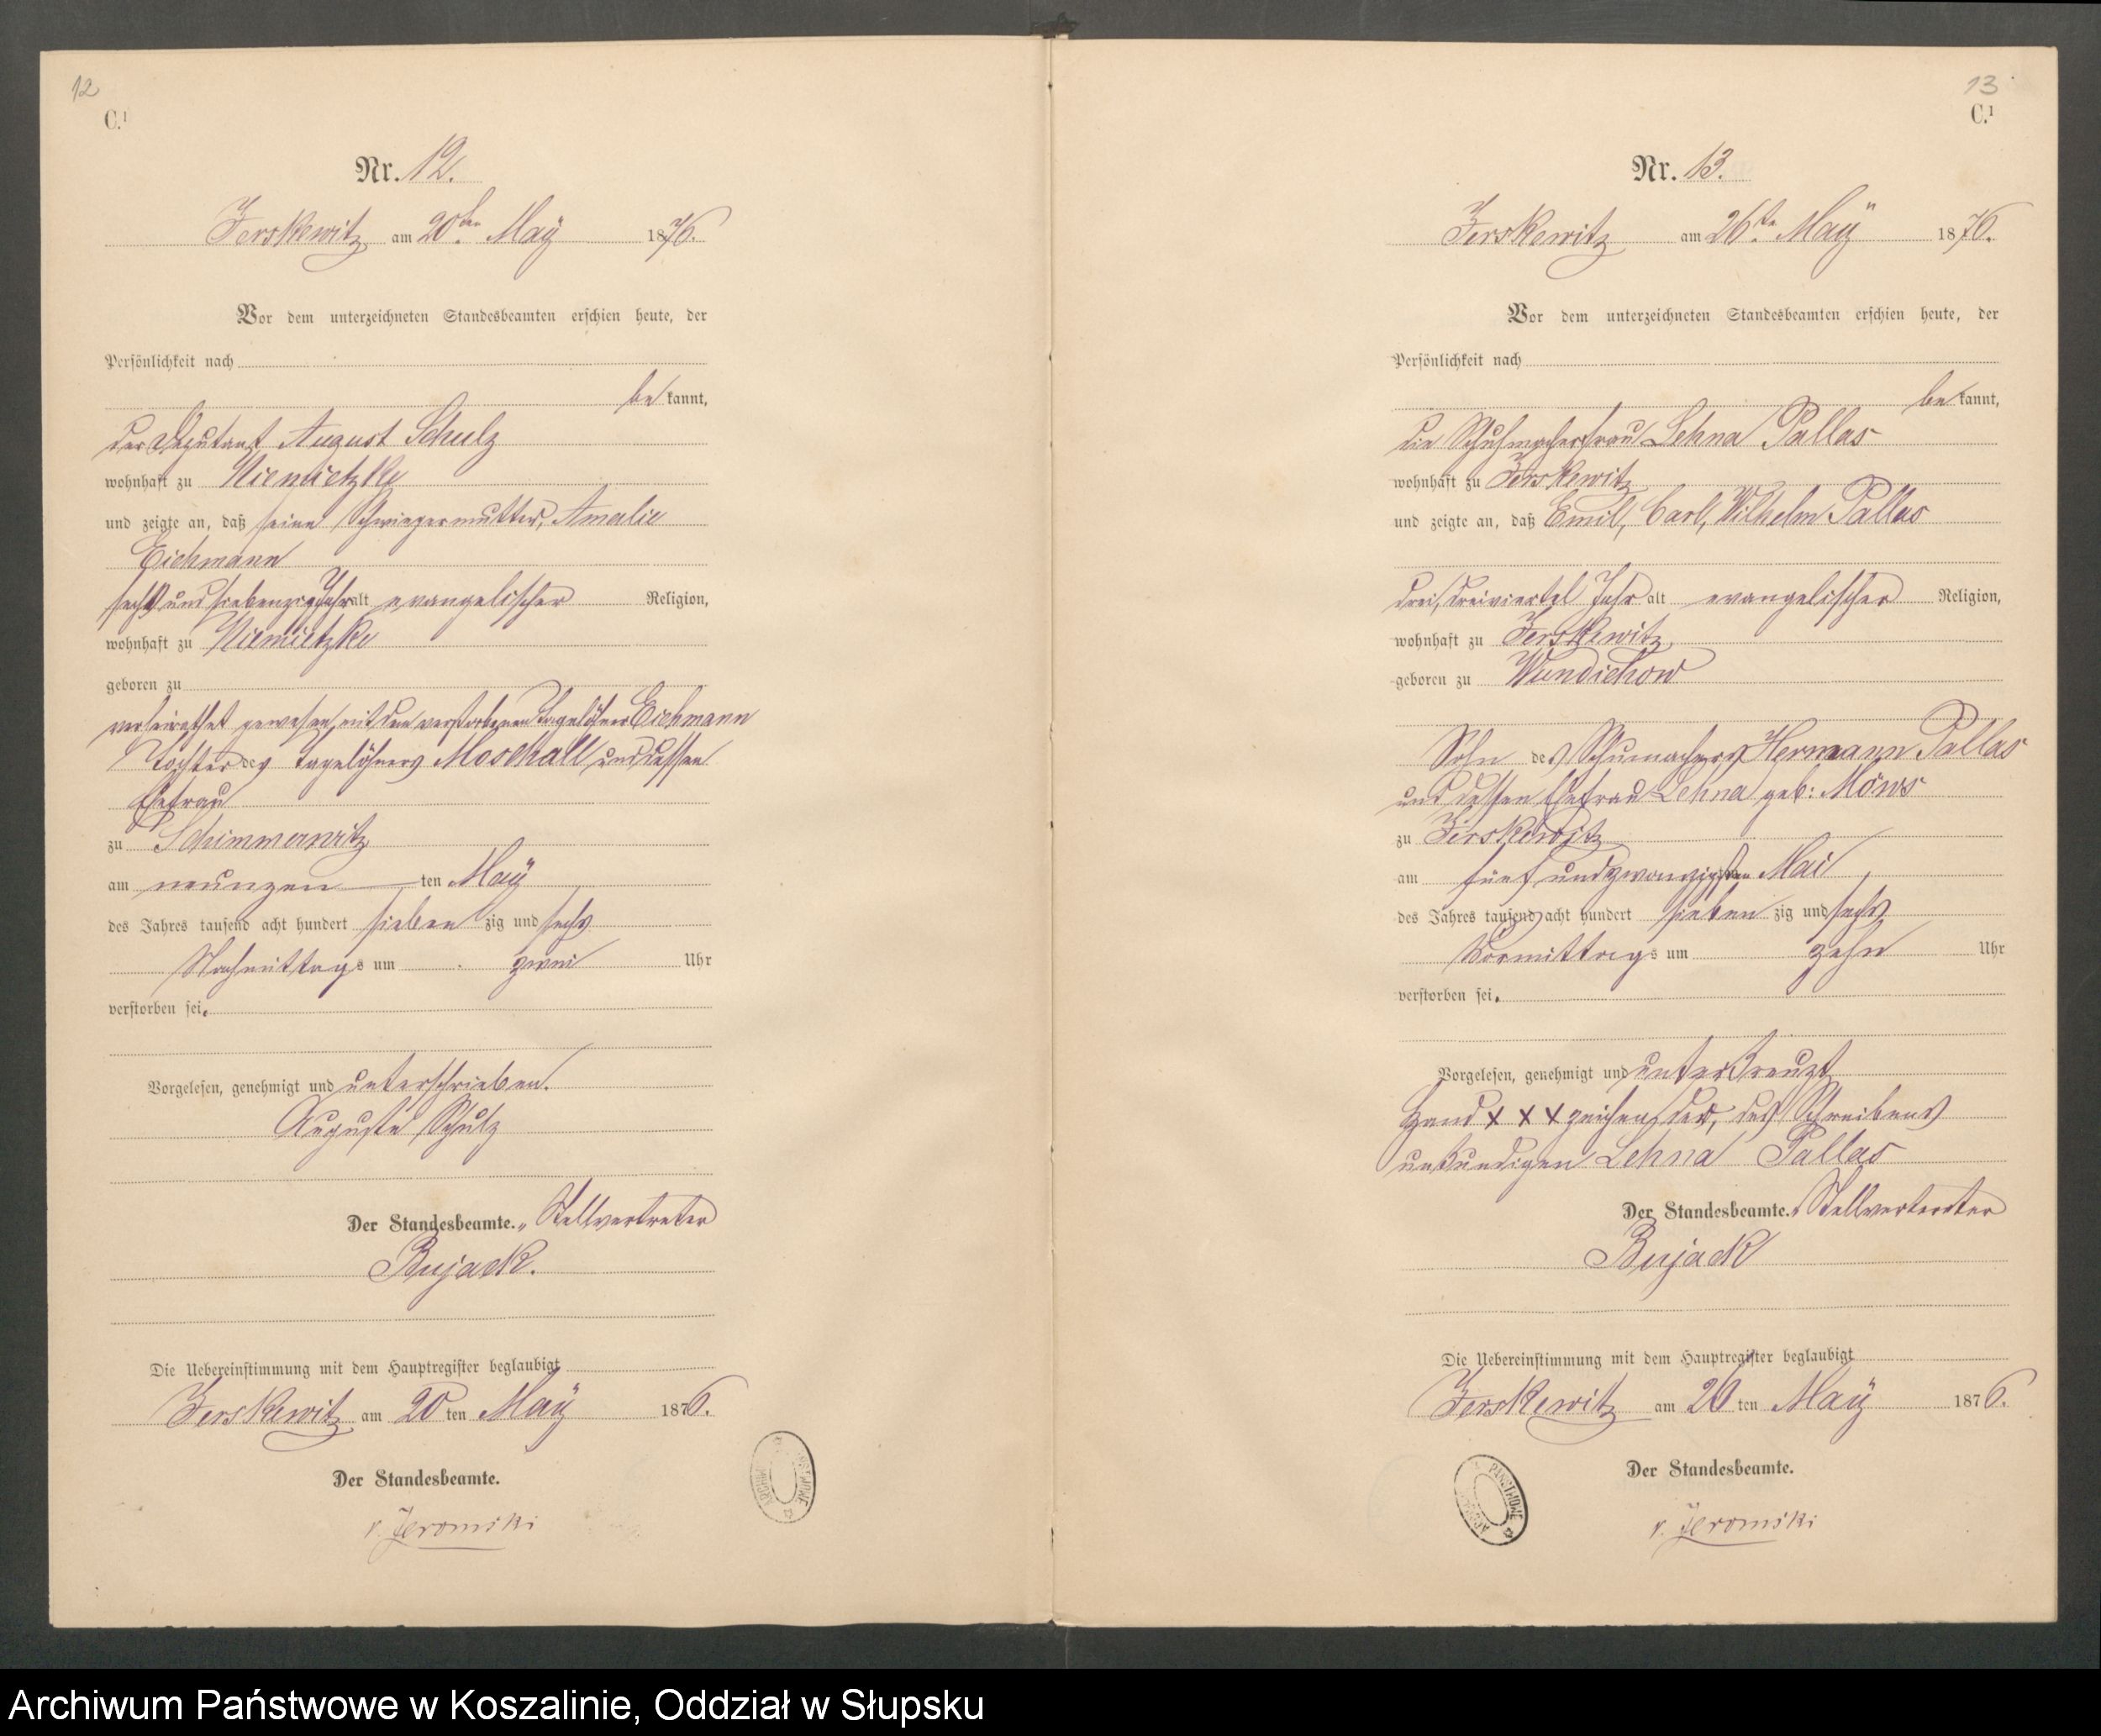 12
C.¹
Nr. 12.
Zerskewitz am 20ten May 1876.
Vor dem unterzeichneten Standesbeamten erschien heute, der
Persönlichkeit nach
be kannt,
der Deputant August Schulz
wohnhaft zu Niemietzke
und zeigte an, daß seine Schwiegermutter, Amalie
Eichmann
sechs und siebenzig Jahr alt evangelischer Religion,
wohnhaft zu Niemietzke
geboren zu
verheirathet gewesen mit dem verstorbenen Tagelöhner Eichmann
Tochter des Tagelöhners Moschall und dessen
Ehefrau
zu Schimmerwitz
am neunzen ten May
des Jahres tausend acht hundert sieben zig und sechs
Nachmittags um zwei Uhr
verstorben sei.
Vorgelesen, genehmigt und unterschrieben.
Auguste Schulz
Der Standesbeamte. Stellvertreter
Bujack.
Die Uebereinstimmung mit dem Hauptregister beglaubigt
Zerskewitz am 20 ten May 1876.
Der Standesbeamte.
v. Jeromski
13
C.¹
Nr. 13.
Zerskewitz am 26te May 1876.
Vor dem unterzeichneten Standesbeamten erschien heute, der
Persönlichkeit nach
be kannt,
die Schuhmacherfrau Lehna Pallas
wohnhaft zu Zerskewitz
und zeigte an, daß Emil, Carl, Wilhelm Pallas
drei, dreiviertel Jahr alt evangelischer Religion,
wohnhaft zu Zerskewitz
geboren zu Wundichow
Sohn des Schumachers Hermann Pallas
und dessen Ehefrau Lehna geb: Möws
zu Zerskewitz
am fünf undzwanzigsten Mai
des Jahres tausend acht hundert sieben zig und sechs
Vormittags um zehn Uhr
verstorben sei.
Vorgelesen, genehmigt und unterkreuzt
Hand x x x zeichen der, des Schreibens
unkundigen Lehna Pallas
Der Standesbeamte. Stellvertreter
Bujack
Die Uebereinstimmung mit dem Hauptregister beglaubigt
Zerskewitz am 26 ten May 1876.
Der Standesbeamte.
v. Jeromski
Archiwum Państwowe w Koszalinie, Oddział w Słupsku